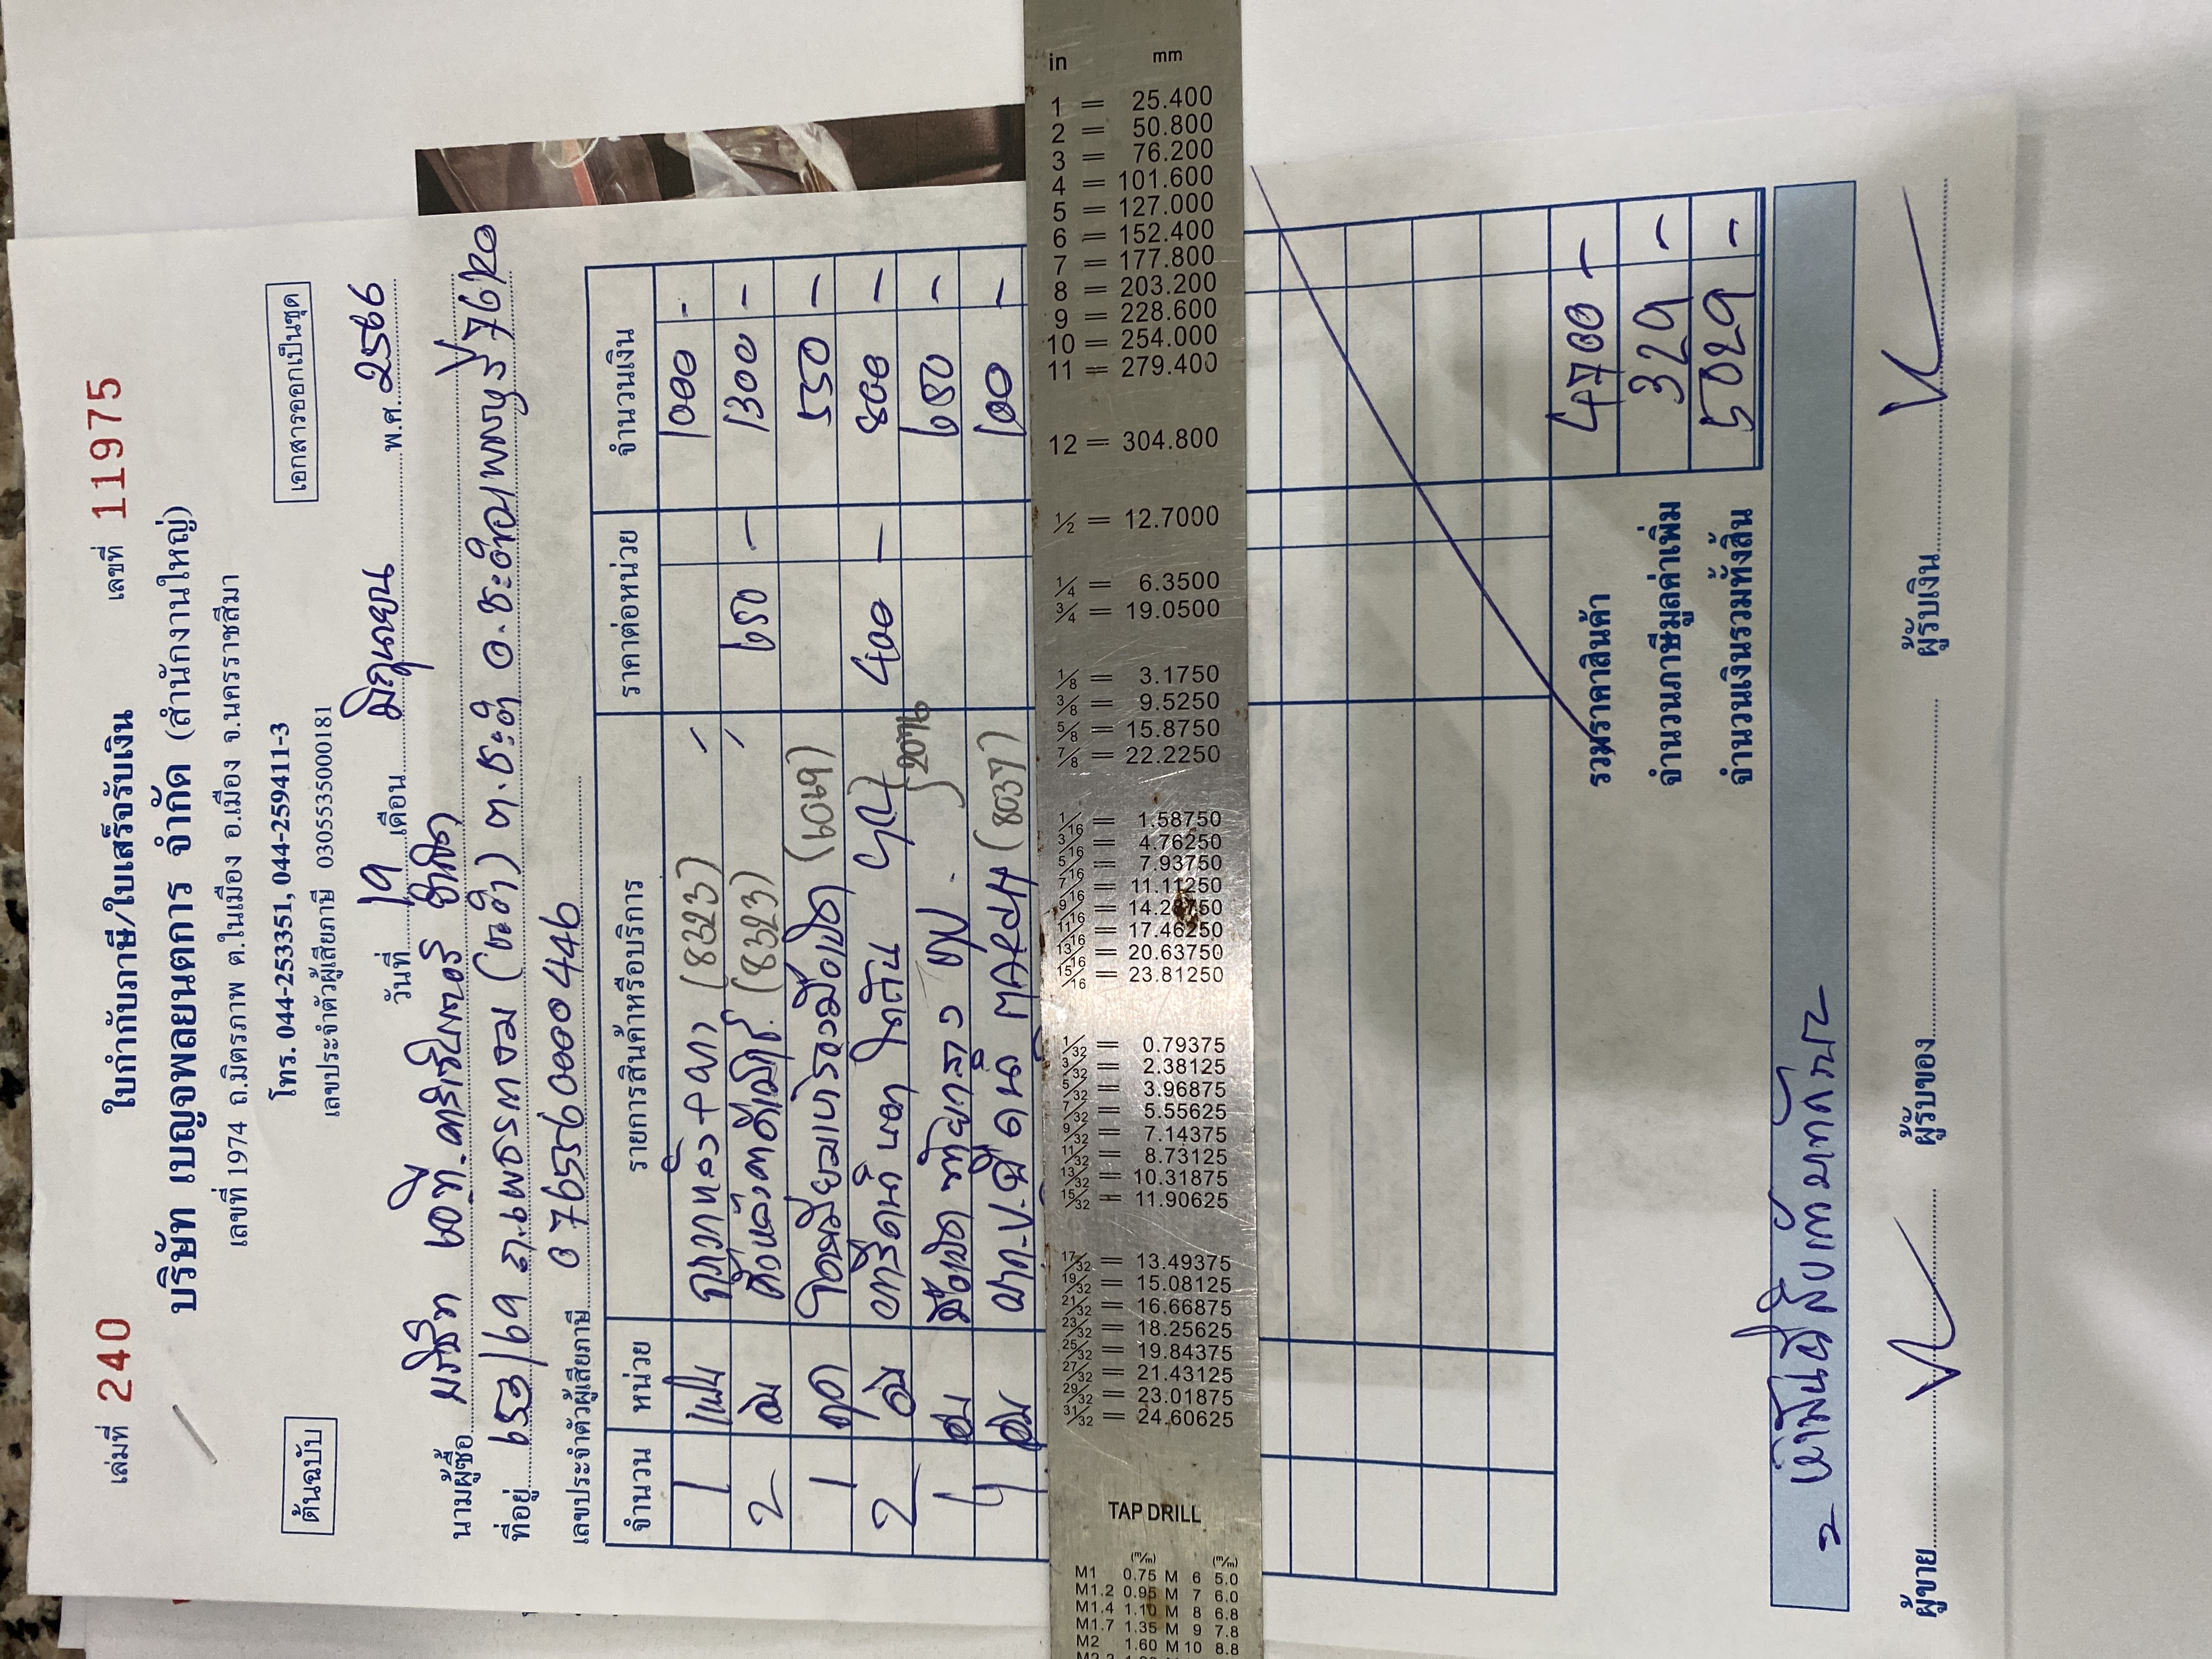 เล่มที่ 240 ใบกำกับภาษี/ใบเสร็จรับเงิน เลขที่ 11975
บริษัท เบญจพลยนตการ จำกัด (สำนักงานใหญ่)
เลขที่ 1974 ถ.มิตรภาพ ต.ในเมือง อ.เมือง จ.นครราชสีมา
ต้นฉบับ โทร. 044-253351, 044-259411-3 เอกสารออกเป็นชุด
เลขประจำตัวผู้เสียภาษี 0305535000181
วันที่ 19 เดือน มิถุนายน พ.ศ. 2566
นามผู้ซื้อ บริษัท เอ.ที. จำกัด
ที่อยู่ 653/69 ถ.เพชรเกษม (ชะอำ) ต.ชะอำ อ.ชะอำ จ.เพชรบุรี 76120
เลขประจำตัวผู้เสียภาษี 0765560000446
จำนวน หน่วย รายการสินค้าหรือบริการ ราคาต่อหน่วย จำนวนเงิน
1 แผ่น + (8323) 1000 -
2 อัน (8323) 650 - 1300 -
1 ชุด 550 -
2 อัน 400 - 800 -
อัน 2076 650 -
4 อัน MARCH (8037) 100 -
รวมราคาสินค้า 4700 -
จำนวนภาษีมูลค่าเพิ่ม 329 -
จำนวนเงินรวมทั้งสิ้น 5029 -
= ห้าพันยี่สิบเก้าบาทถ้วน =
ผู้ขาย ผู้รับของ ผู้รับเงิน
in mm
1 = 25.400
2 = 50.800
3 = 76.200
4 = 101.600
5 = 127.000
6 = 152.400
7 = 177.800
8 = 203.200
9 = 228.600
10 = 254.000
11 = 279.400
12 = 304.800
1/2 = 12.7000
1/4 = 6.3500
3/4 = 19.0500
1/8 = 3.1750
3/8 = 9.5250
5/8 = 15.8750
7/8 = 22.2250
1/16 = 1.58750
3/16 = 4.76250
5/16 = 7.93750
7/16 = 11.11250
9/16 = 14.28750
11/16 = 17.46250
13/16 = 20.63750
15/16 = 23.81250
1/32 = 0.79375
3/32 = 2.38125
5/32 = 3.96875
7/32 = 5.55625
9/32 = 7.14375
11/32 = 8.73125
13/32 = 10.31875
15/32 = 11.90625
17/32 = 13.49375
19/32 = 15.08125
21/32 = 16.66875
23/32 = 18.25625
25/32 = 19.84375
27/32 = 21.43125
29/32 = 23.01875
31/32 = 24.60625
TAP DRILL
(m/m) (m/m)
M1 0.75 M 6 5.0
M1.2 0.95 M 7 6.0
M1.4 1.10 M 8 6.8
M1.7 1.35 M 9 7.8
M2 1.60 M 10 8.8